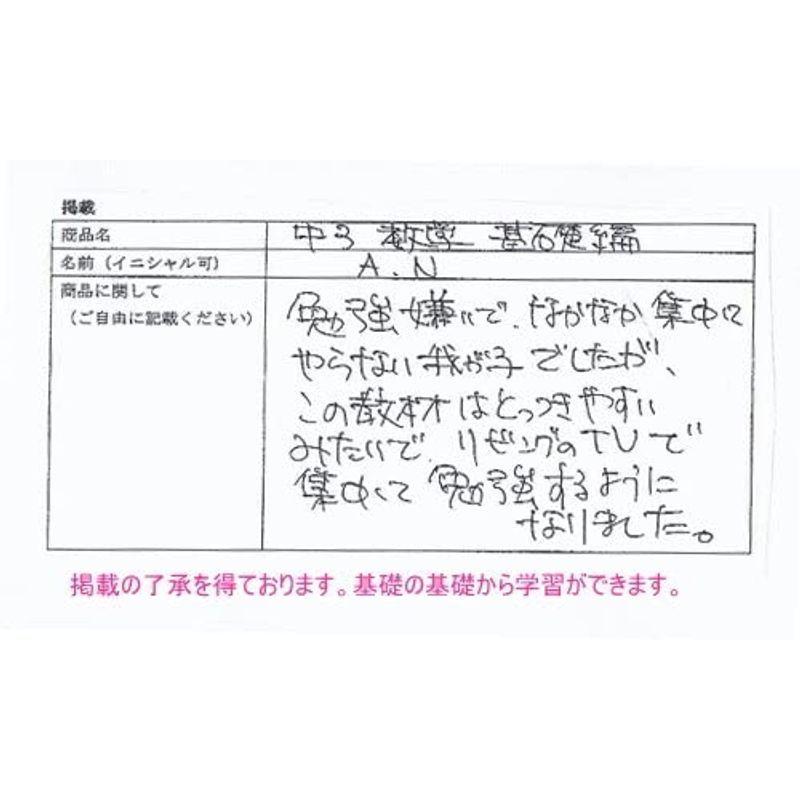 掲載
商品名 中3 数学 基礎編
名前（イニシャル可） A.N
商品に関して
（ご自由に記載ください）
勉強嫌いで、なかなか集中して
やらない我が子でしたが、
この教材はとっつきやすい
みたいで、リビングのTVで
集中して 勉強するように
なりました。
掲載の了承を得ております。基礎の基礎から学習ができます。